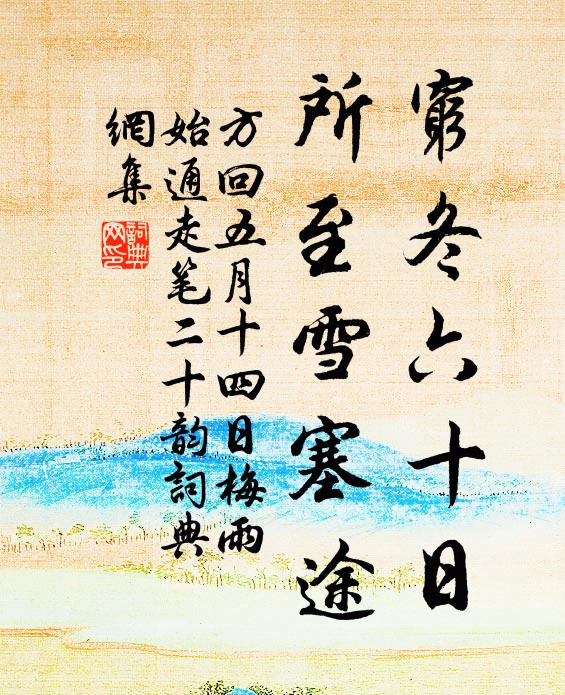 窮冬六十日
所至雪塞途
方回五月十四日梅雨
始通走笔二十韵詞典
網集
詞典
网印